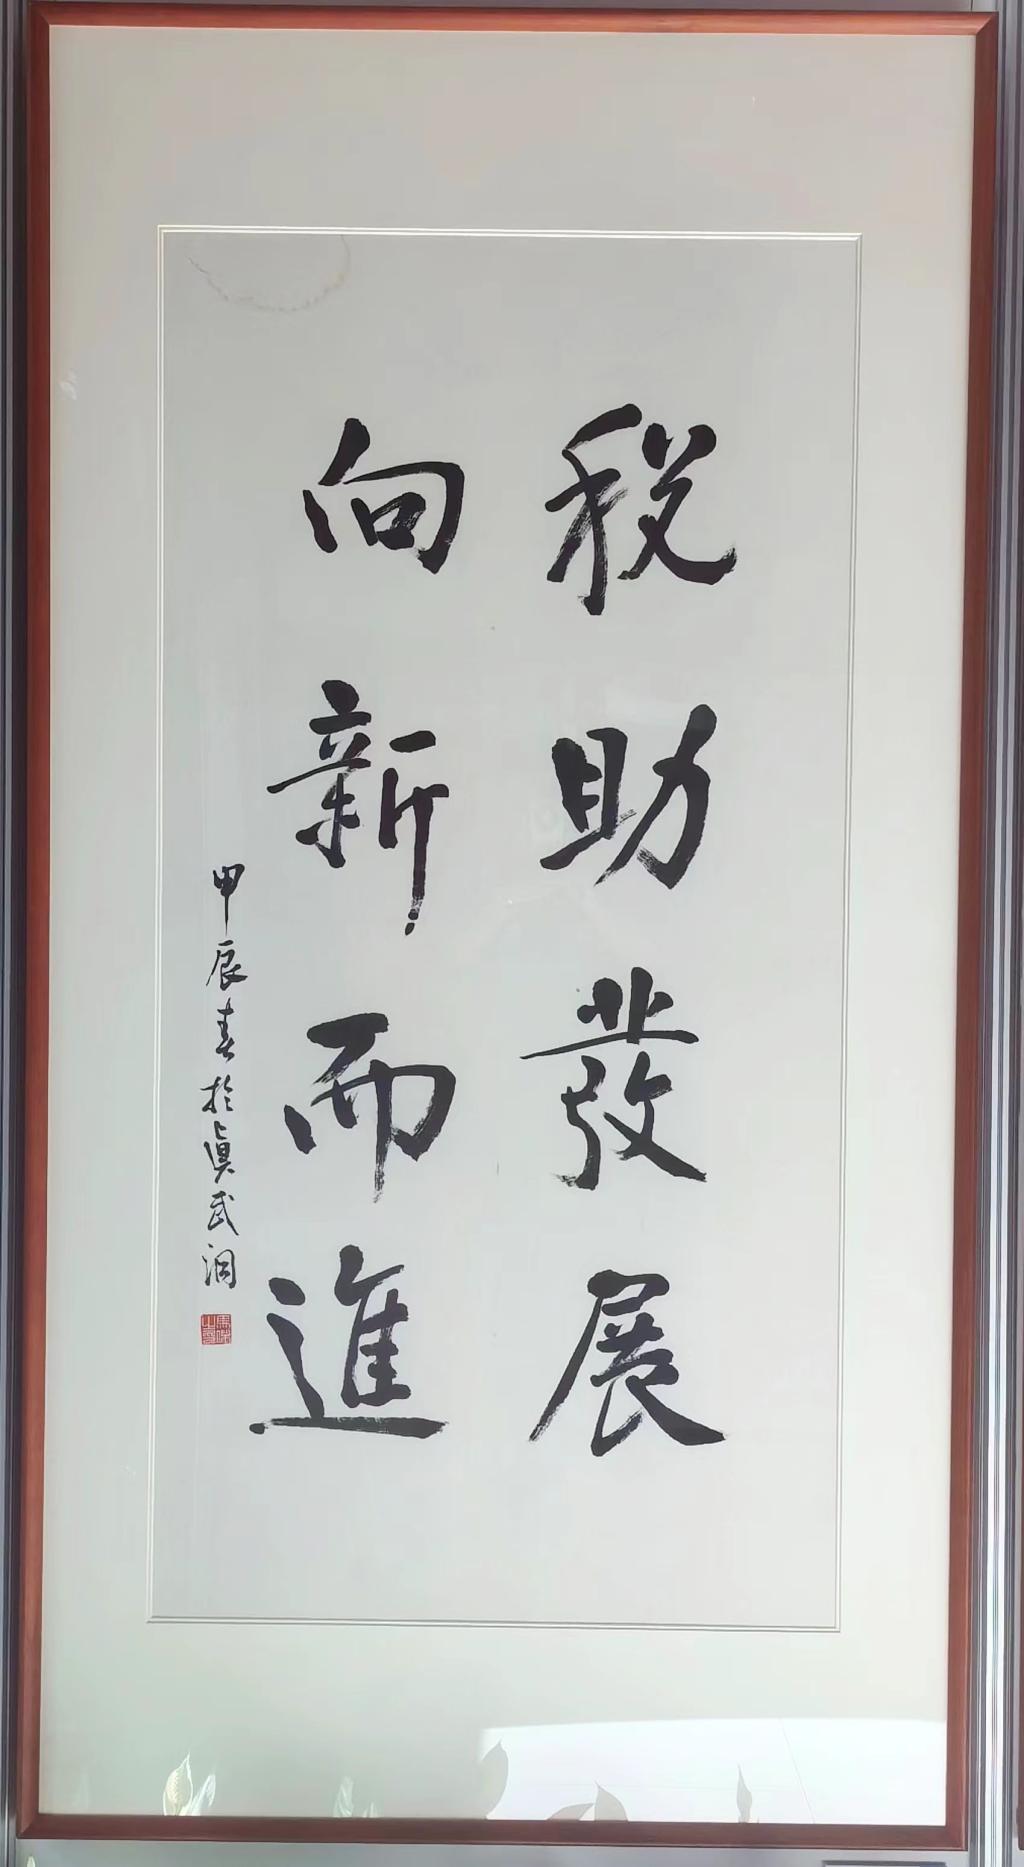 税助發展
向新而進
甲辰春於真武洞